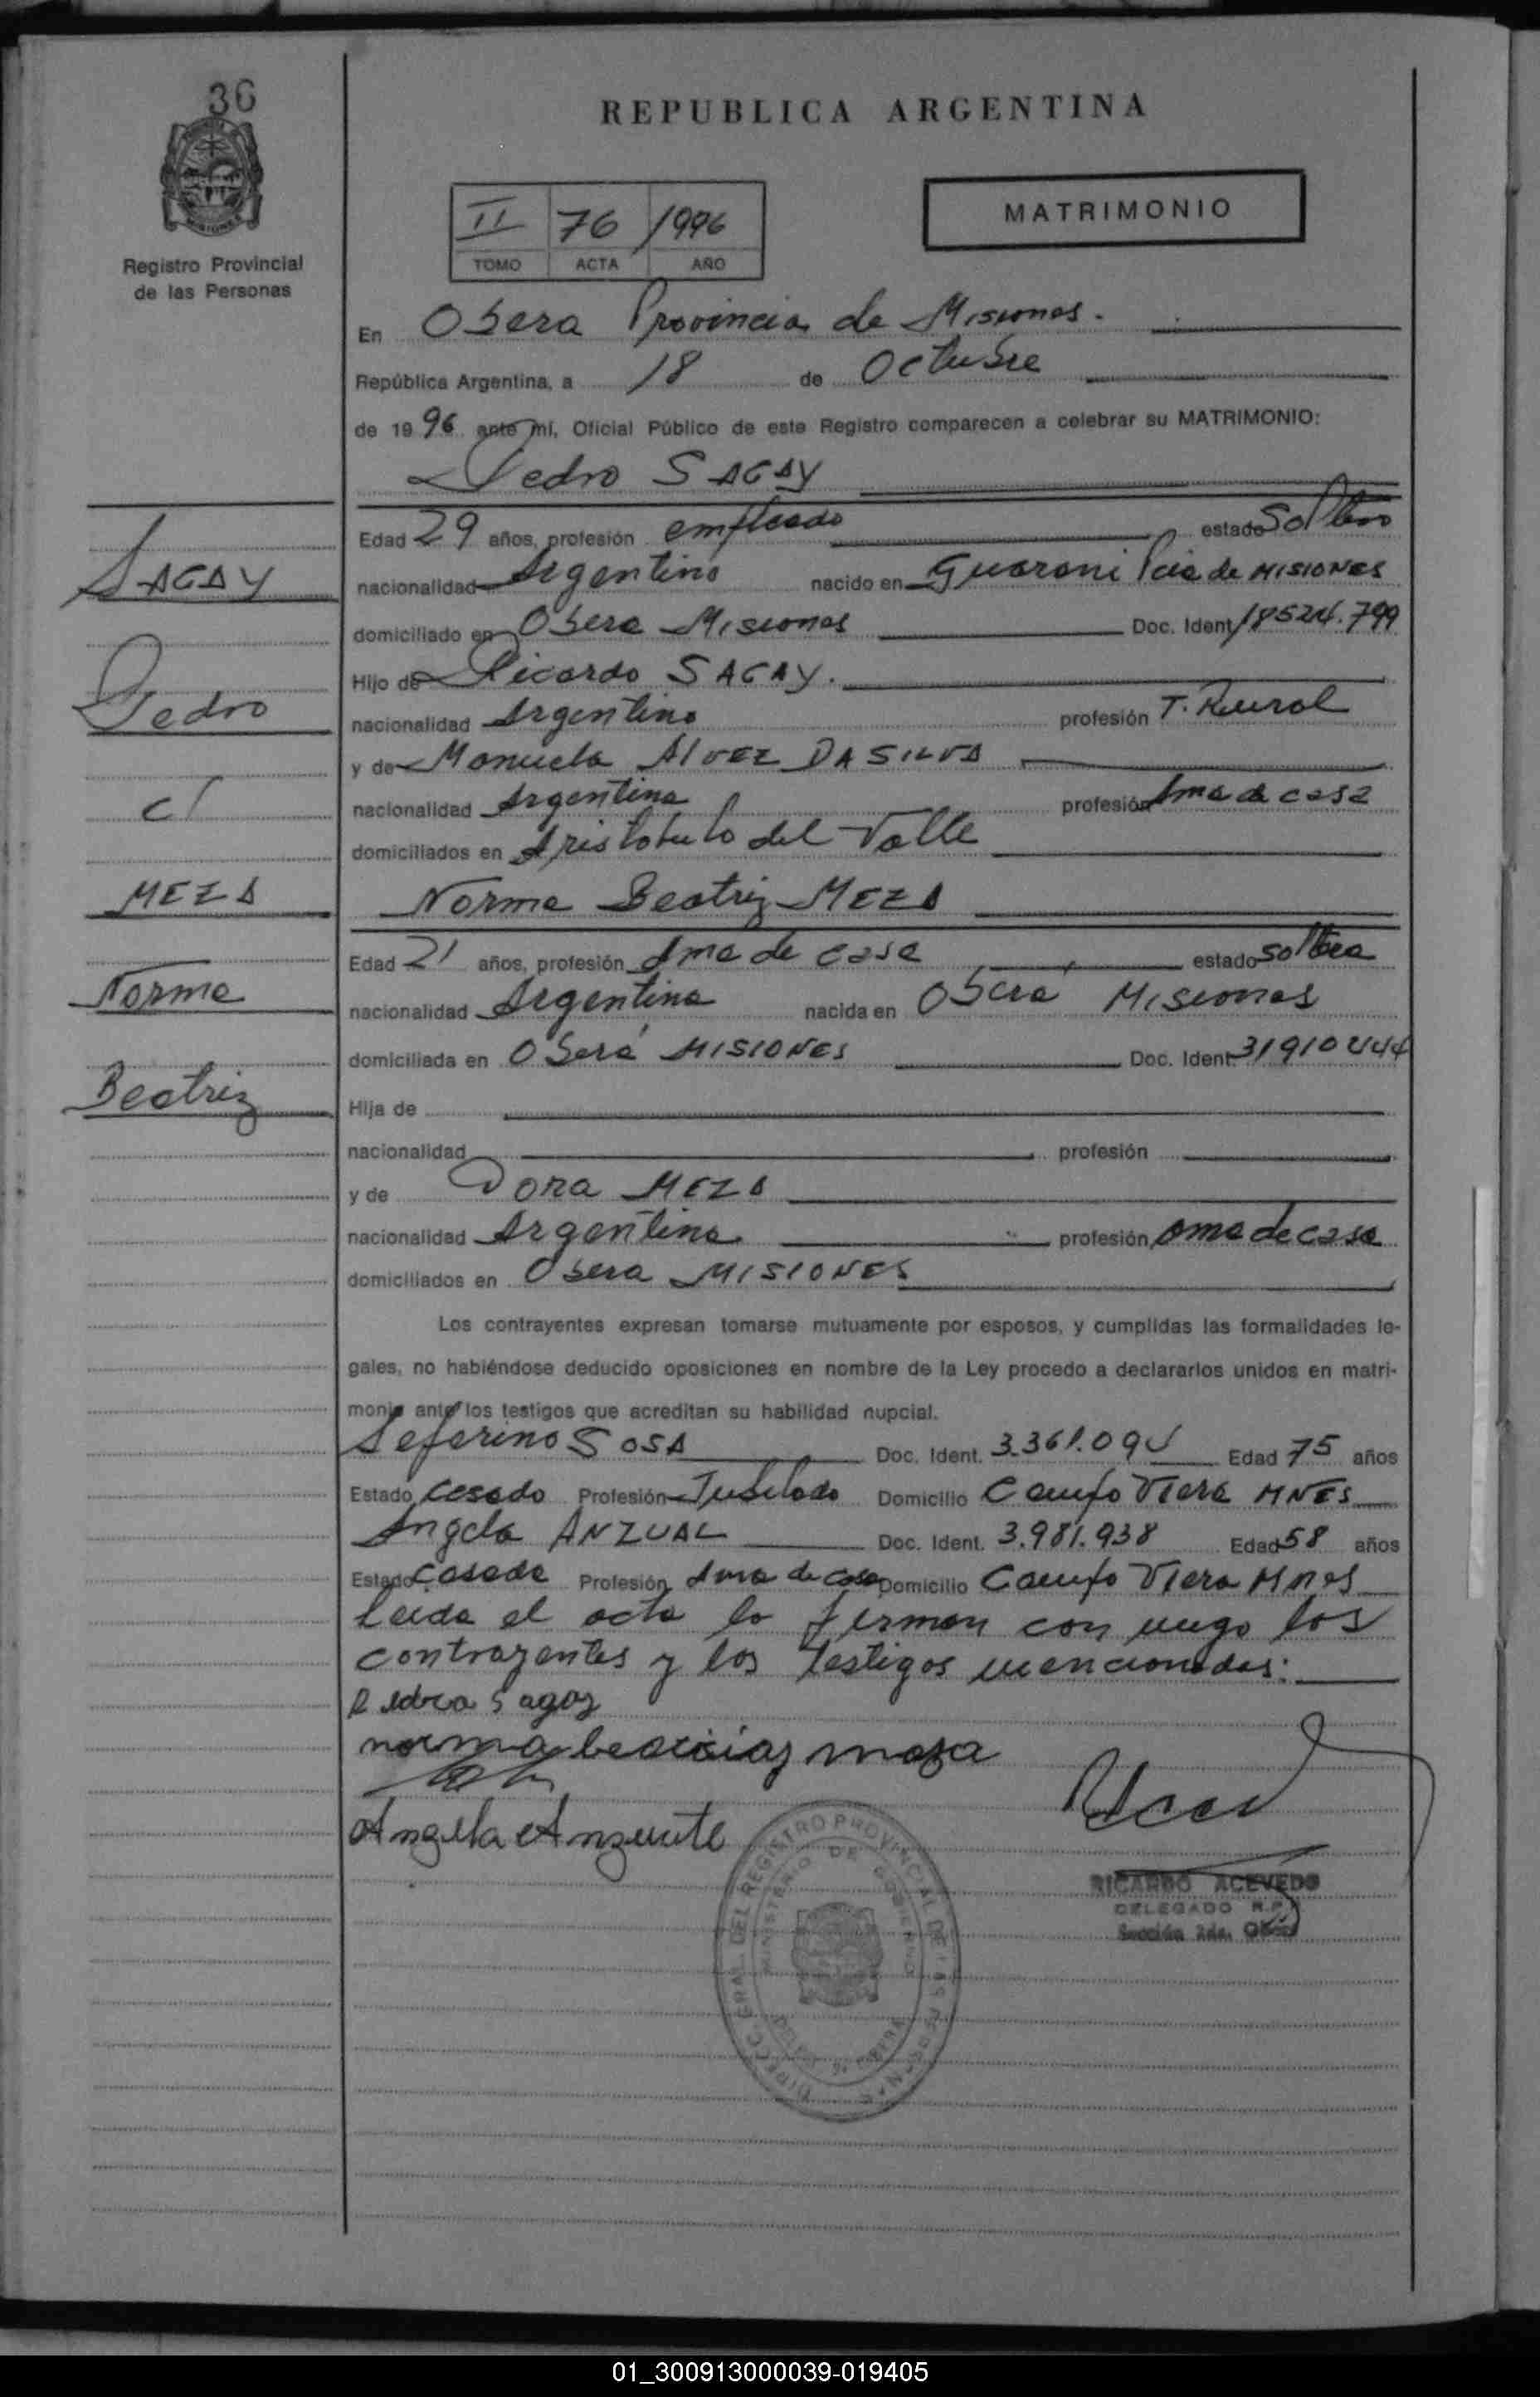 36
REPUBLICA ARGENTINA
MATRIMONIO
II 76 1996
TOMO ACTA AÑO
Registro Provincial
de las Personas
En Obera Provincia de Misiones.
República Argentina, a 18 de Octubre
de 1996 ante mí, Oficial Público de este Registro comparecen a celebrar su MATRIMONIO:
Pedro SAGAY
Edad 29 años, profesión empleado estado soltero
SAGAY
nacionalidad Argentino nacido en Guarani Pcia de MISIONES
domiciliado en Obera Misiones Doc. Ident 18524.799
Hijo de Ricardo SAGAY.
Pedro
nacionalidad Argentino profesión T. Rural
y de Manuela Alvez DA SILVA
c/
nacionalidad Argentina profesión Ama de casa
domiciliados en Aristobulo del Valle
MEZA
Norma Beatriz MEZA
Edad 21 años, profesión Ama de casa estado soltera
Norma
nacionalidad Argentina nacida en Oberá Misiones
domiciliada en Oberá MISIONES Doc. Ident. 31910444
Beatriz
Hija de
nacionalidad profesión
y de Dora MEZA
nacionalidad Argentina profesión ama de casa
domiciliados en Obera MISIONES
Los contrayentes expresan tomarse mutuamente por esposos, y cumplidas las formalidades le-
gales, no habiéndose deducido oposiciones en nombre de la Ley procedo a declararlos unidos en matri-
monio ante los testigos que acreditan su habilidad nupcial.
Seferino SOSA Doc. Ident. Edad 75 años
Estado casado Profesión Jubilado Domicilio Campo Viera MNES
Angela ANZUAL Doc. Ident. 3.981.938 Edad 58 años
Estado casada Profesión Ama de casa Domicilio Campo Viera Mnes
Leida el acta la firman con migo los
contrayentes y los testigos mencionados:
Pedro Sagay
norma beatriz meza
Angela
RICARDO ACEVEDO
DELEGADO R.P.
Sección 2da. Oberá
DIRECC. GRAL. DEL REGISTRO PROVINCIAL DE LAS PERSONAS
MINISTERIO DE GOBIERNO
01_300913000039-019405